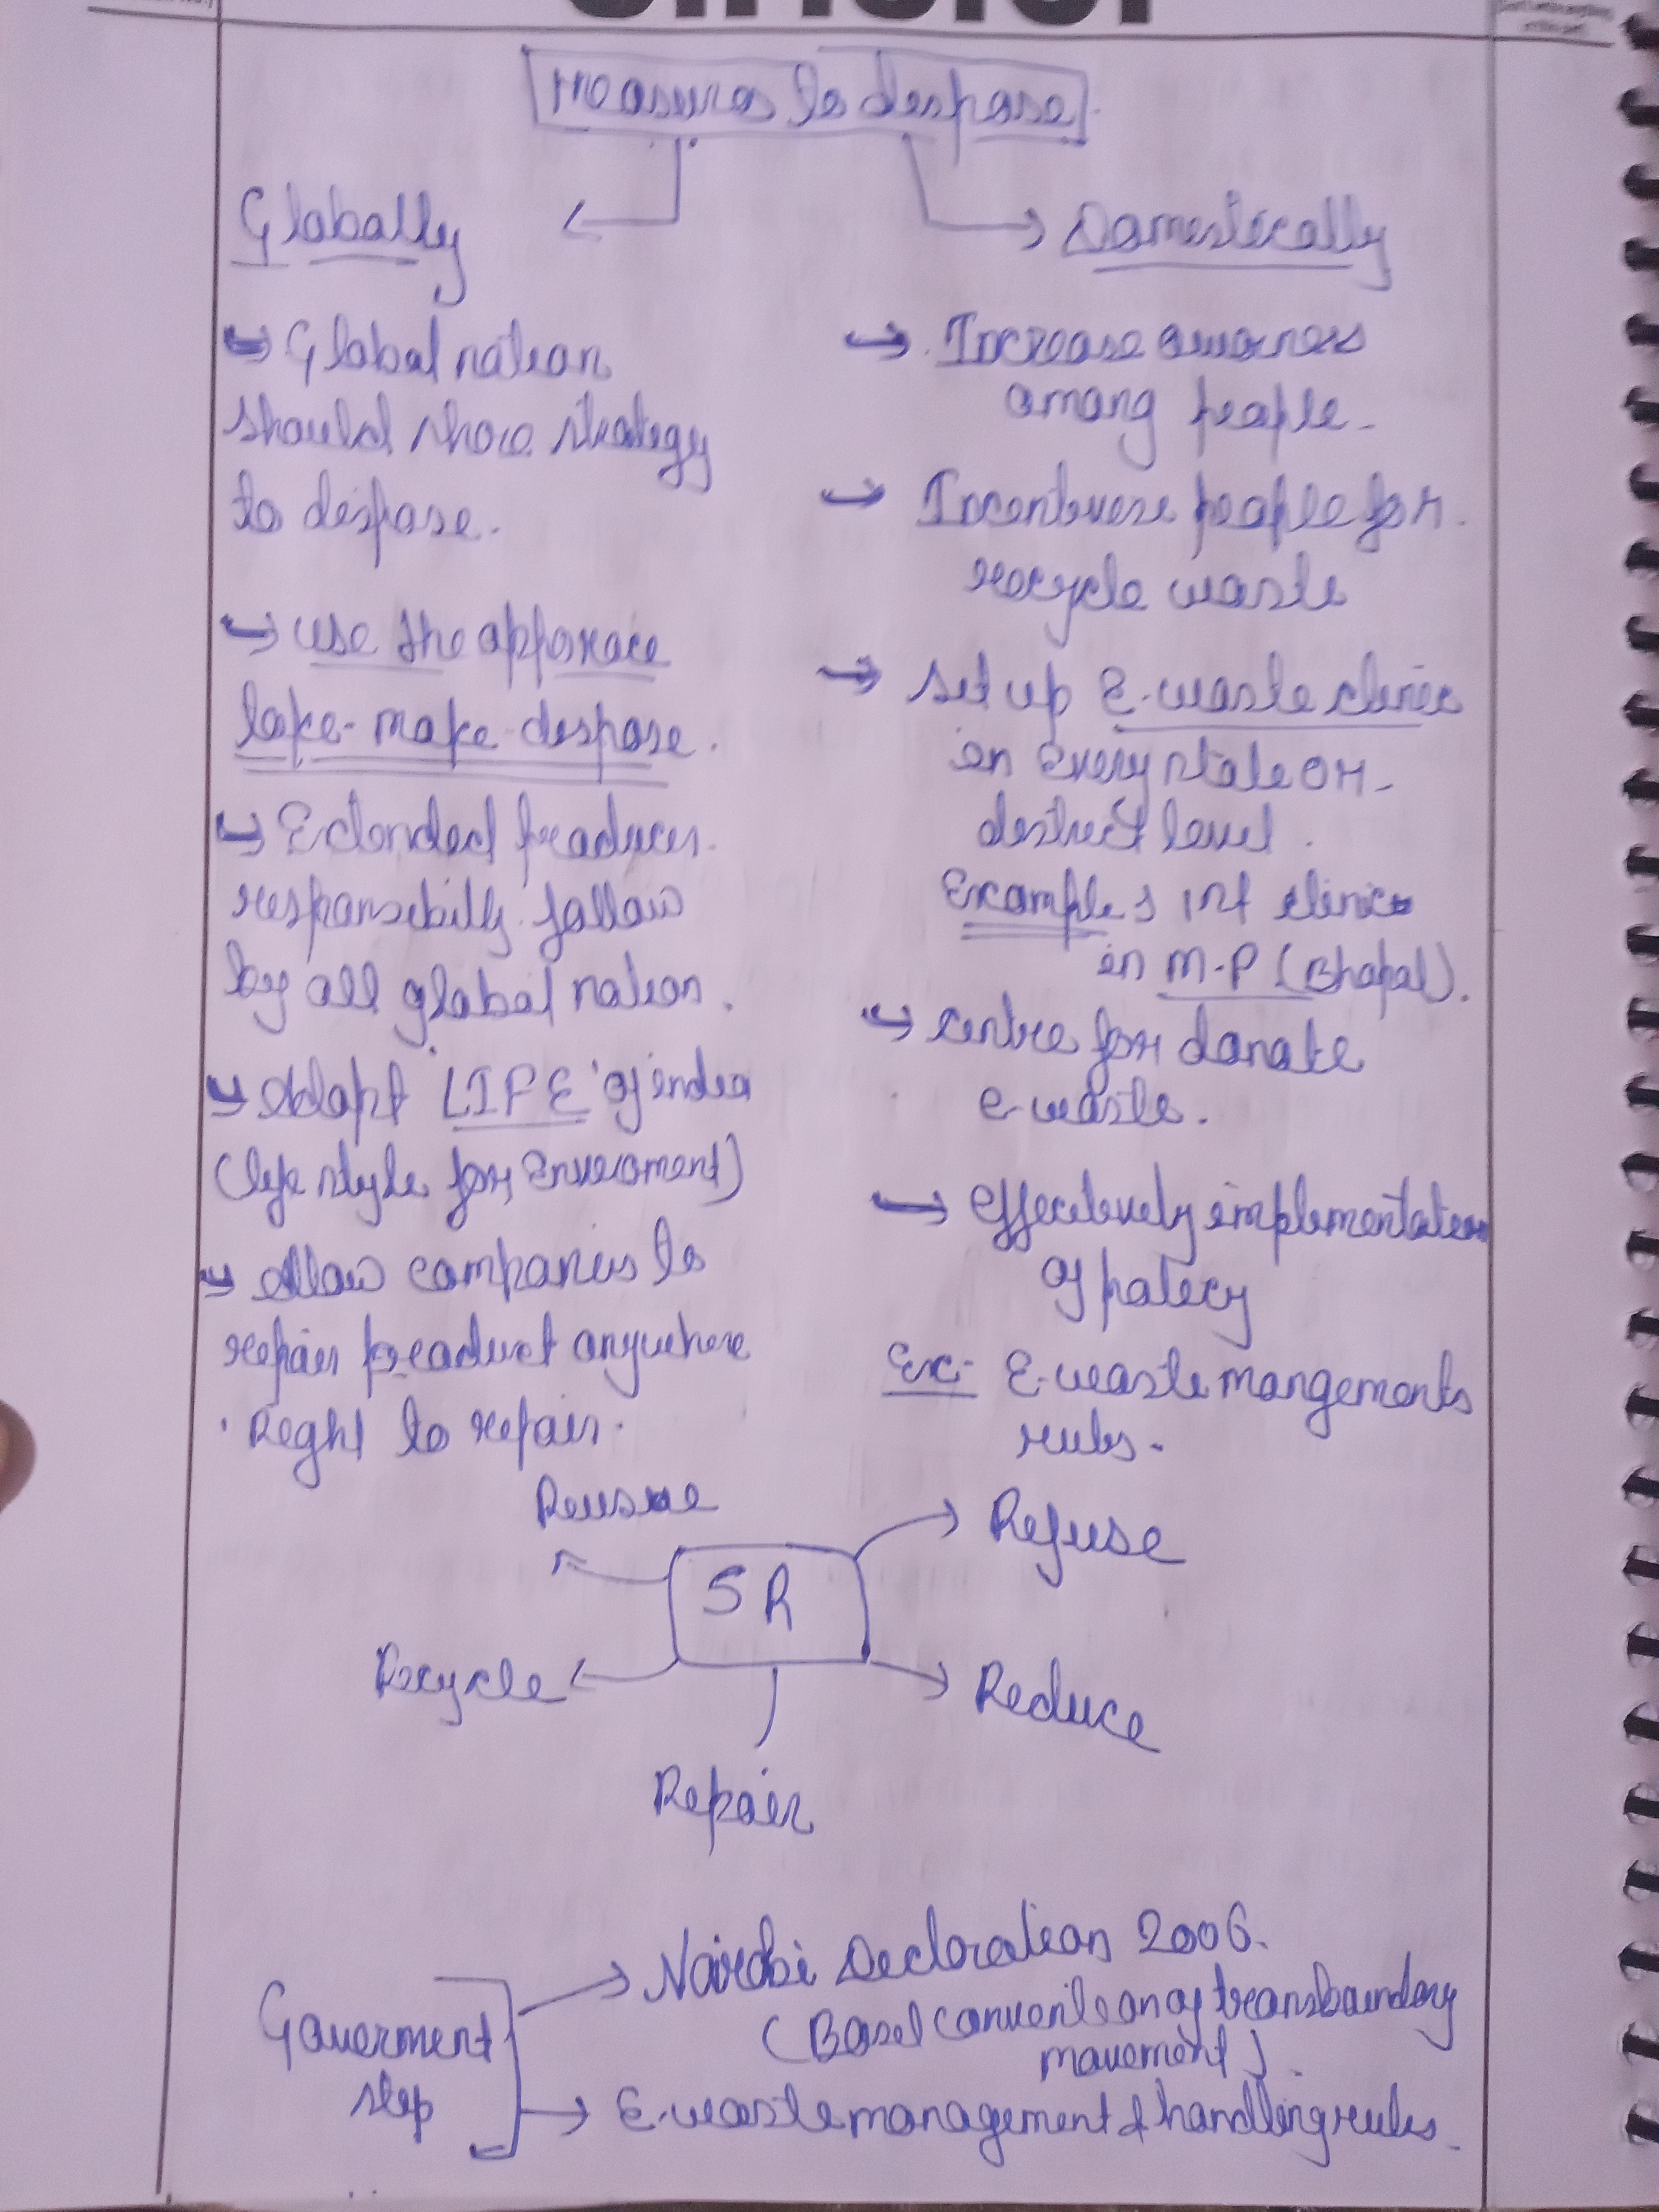 Measures to despose
Globally
Domestically
→ Global nation
should share strategy
to dispose.
→ use the apporace
take-make-despose.
→ Extended producer
responsibility follow
by all global nation.
→ Adopt 'LIFE' of india
(life style for Enveroment)
→ Allow companies to
repair product anywhere
Right to repair.
→ Increase awarness
among people.
→ Incentivese people for
recycle waste
→ set up E-waste clinic
in Every state or
district level.
Example: 1st clinic
in M.P (Bhopal).
→ centre for donate
e-waste.
→ effectively implementation
of policy
Ex:- E-waste mangements
rules.
Reuse
Refuse
5 R
Recycle
Reduce
Repair
Nairobi Declaration 2006.
(Basel convention of transboundary
movement).
Goverment
step
E-waste management & handling rules.